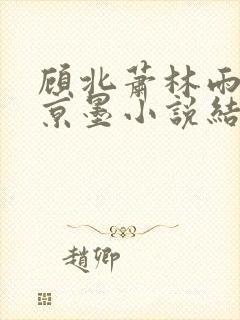 顧北蕭林雨
京墨小說結
趙卿